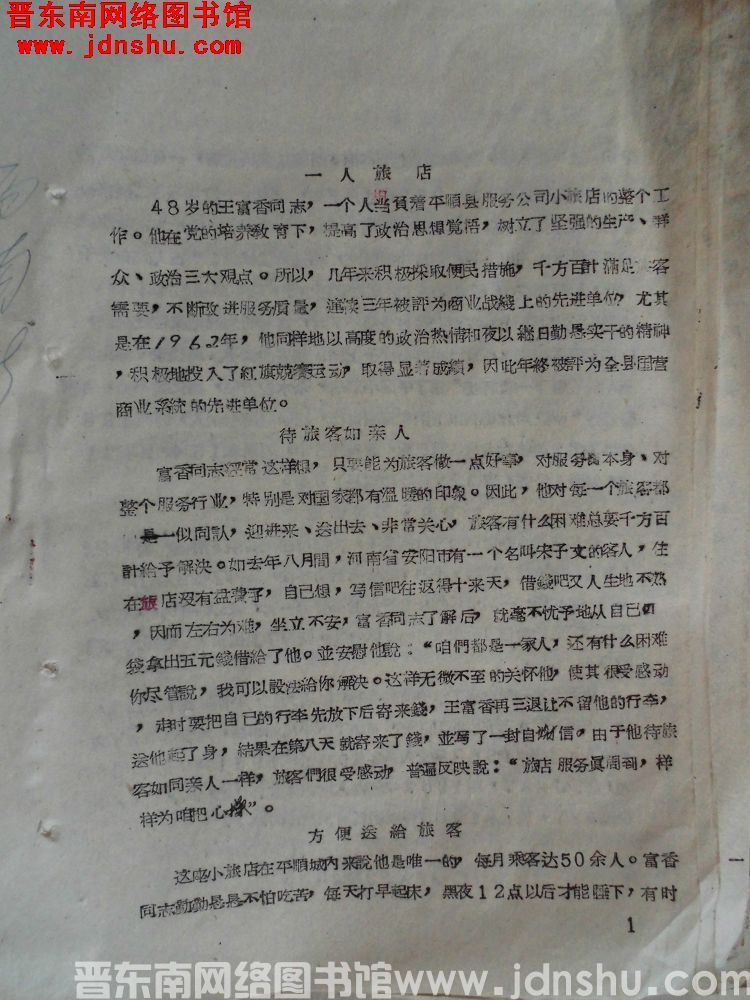 晋东南网络图书馆
www.jdnshu.com
一人旅店
48岁的王富香同志，一个人担負着平順县服务公司小旅店的整个工
作。他在党的培养教育下，提高了政治思想覚悟，树立了坚强的生产、群
众、政治三大观点。所以，几年来积极採取便民措施，千方百計滿足客
需要，不断改进服务质量，連续三年被評为商业战綫上的先进单位？尤其
是在1962年，他同样地以高度的政治热情和夜以継日勤恳实干的精神
，积极地投入了紅旗競赛运动，取得显著成績，因此年終被評为全县国营
商业系統的先进单位。
待旅客如亲人
富香同志經常这样想，只要能为旅客做一点好事，对服务員本身、对
整个服务行业，特别是对国家都有温暖的印象。因此，他对每一个旅客都
是一似同認，迎进来、送出去、非常关心，旅客有什么困难总要千方百
計給予解决。如去年八月間，河南省安阳市有一个名叫宋子文的客人，住
在旅店沒有盆費了，自己想，写信吧往返得十来天，借錢吧又人生地不熟
，因而左右为难，坐立不安，富香同志了解后，就毫不忧予地从自己口
袋拿出五元錢借給了他。並安慰他說：“咱們都是一家人，还有什么困难
你尽管說，我可以設法給你解决。这样无微不至的关怀他，使其很受感动
，走时要把自己的行李先放下后寄来錢，王富香再三退让不留他的行李，
送他起了身，結果在第八天就寄来了錢，並写了一封自謝信。由于他待旅
客如同亲人一样，旅客們很受感动，普遍反映說：“旅店服务眞周到，样
样为咱把心操”。
方便送給旅客
这座小旅店在平順城內来說他是唯一的，每月乘客达50余人。富香
同志勤勤恳恳不怕吃苦，每天打早起床，黑夜12点以后才能睡下，有时
1
晋东南网络图书馆www.jdnshu.com